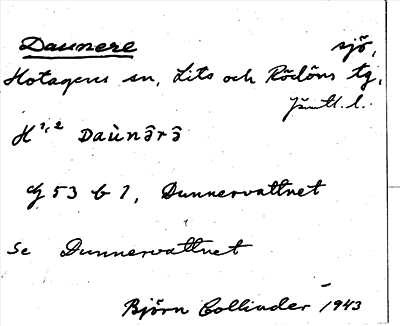 Daunere sjö,
Hotagens sn, Lits och Rödöns tg,
Jämtl. l.
H 1,2 Daùnǝ̂rǝ̂
G 53 b 1, Dunnervattnet
Se Dunnervattnet
Björn Collinder 1943